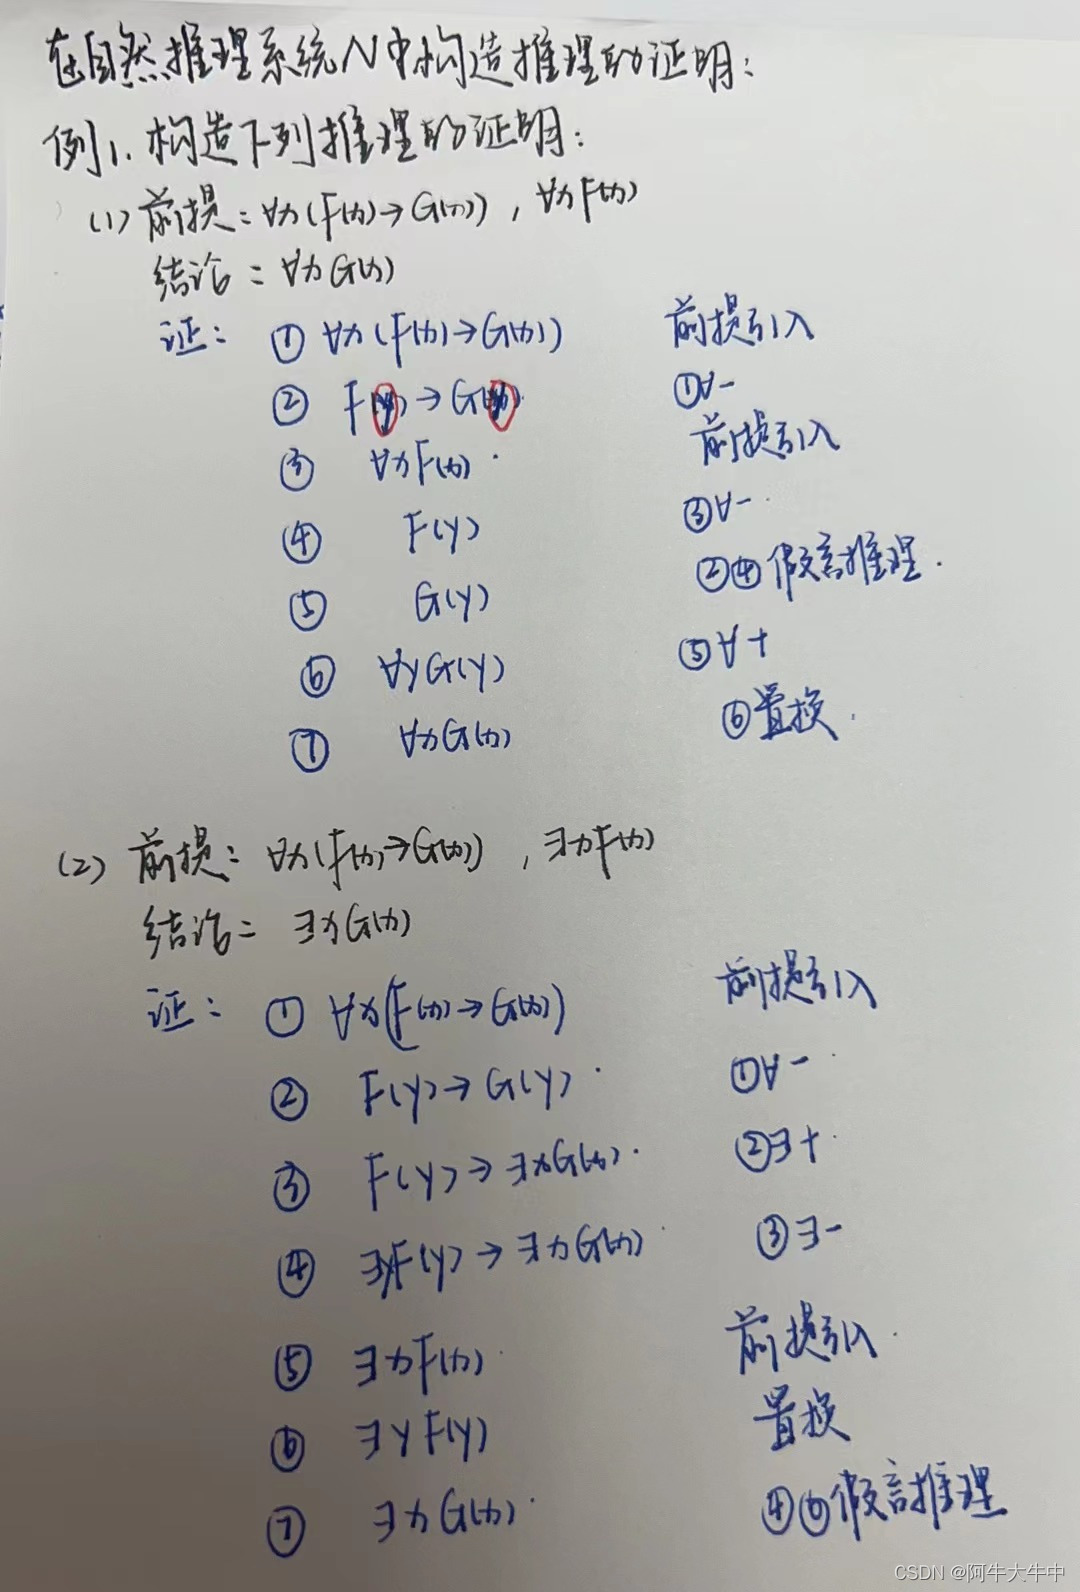 在自然推理系统N中构造推理的证明：
例1. 构造下列推理的证明：
(1) 前提：∀x(F(x)→G(x))，∀xF(x)
结论：∀xG(x)
证： ① ∀x(F(x)→G(x)) 前提引入
② F(y)→G(y) ①∀-
③ ∀xF(x) 前提引入
④ F(y) ③∀-
⑤ G(y) ②④假言推理.
⑥ ∀yG(y) ⑤∀+
⑦ ∀xG(x) ⑥置换.
(2) 前提：∀x(F(x)→G(x))，∃xF(x)
结论：∃xG(x)
证： ① ∀x(F(x)→G(x)) 前提引入
② F(y)→G(y) ①∀-
③ F(y)→∃xG(x) ②∃+
④ ∃yF(y)→∃xG(x) ③∃-
⑤ ∃xF(x) 前提引入
⑥ ∃yF(y) 置换
⑦ ∃xG(x) ④⑥假言推理
CSDN @阿牛大牛中